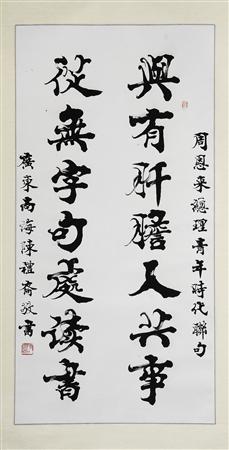 周恩來總理青年時代聯句
與有肝膽人共事
從無字句處读書
廣東南海陳禮齋敬書